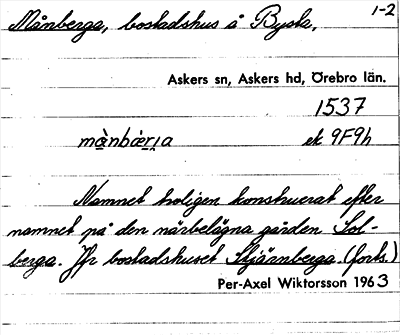 Månberga, bostadshus å Bysta, 1-2
Askers sn, Askers hd, Örebro län.
1537
mànbær̨ɩa ek 9F9h
Namnet troligen konstruerat efter
namnet på den närbelägna gården Sol-
berga. Jfr bostadshuset Stjärnberga. (forts.)
Per-Axel Wiktorsson 1963